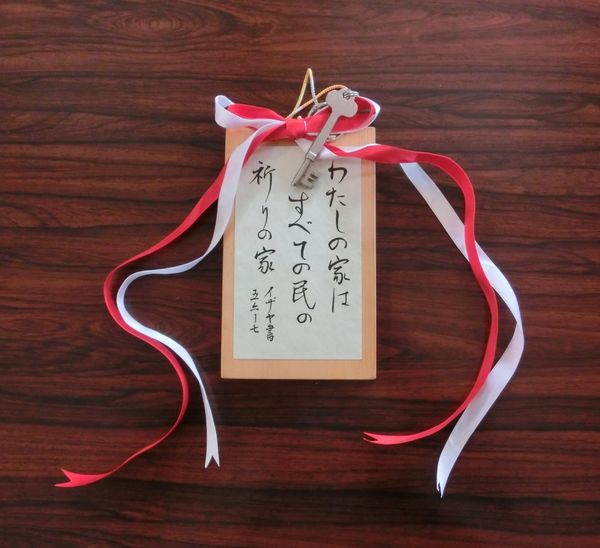 わたしの家は
すべての民の
祈りの家
イザヤ書
五六ー七